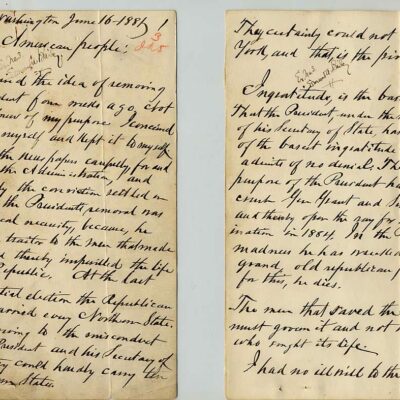 Washington June 16-1881,
American people:
ived the idea of removing
dent four weeks ago. Not
knew of my purpose. I conceived
myself and kept it to myself.
the newspapers carefully, for and
the Administration, and
ly the conviction settled on
the President's removal was
cal necessity, because, he
traitor to the men that made
nd thereby imperiled the life
epublic. At the last
tial election the Republican
arried every Northern State.
wing to the misconduct
President and his Secretary of
ty could hardly carry ten
ern States.
They certainly could not
York, and that is the piv
Ingratitude, is the bas
That the President, under the
of his Secretary of State, has
of the basest ingratitude
admits of no denial. Th
purpose of the President ha
crush Gen Grant and
and thereby open the way for
ination in 1884. In the P
madness he has wrecked
grand, old republican
for this, he dies.
The men that saved the
must govern it and not
who sought its life.
I had no ill-will to the